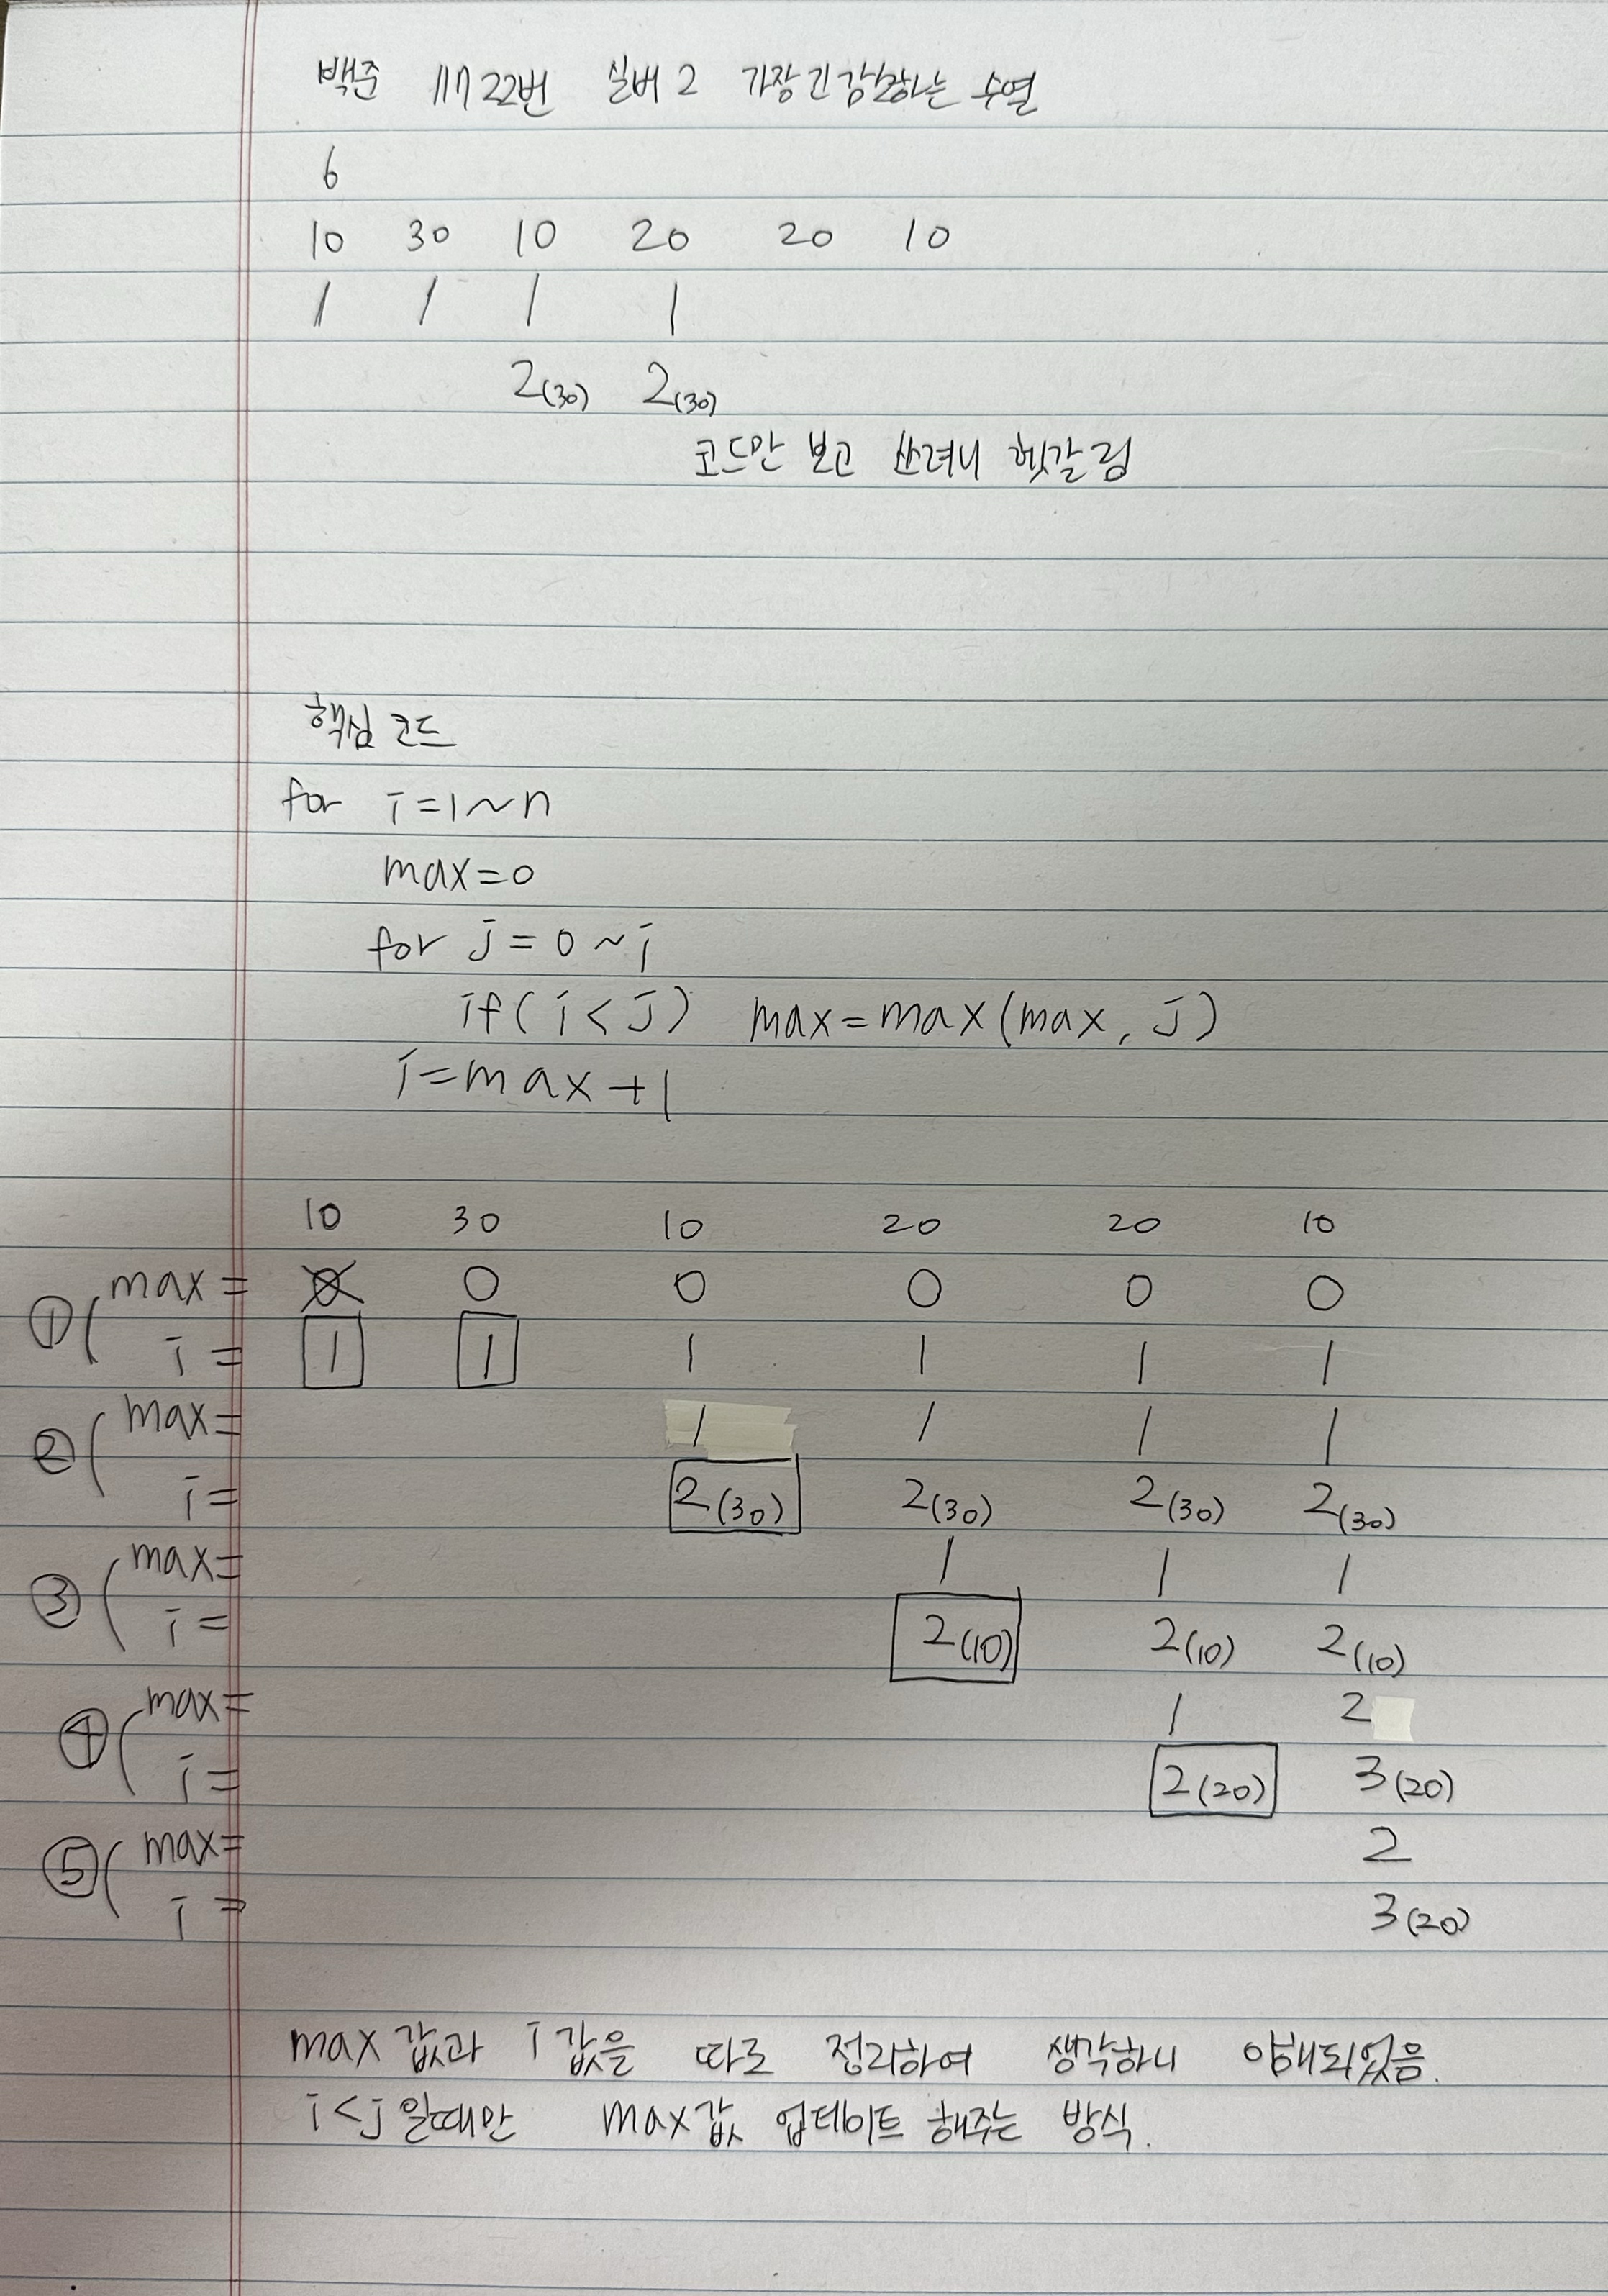 백준 11722번 실버2 가장 긴 감소하는 수열
6
10 30 10 20 20 10
1 1 1 1
2(30) 2(30)
코드만 보고 쓰려니 헷갈림
핵심 코드
for i=1~n
max=0
for j=0~i
if(i<j) max=max(max, j)
i=max+1
10 30 10 20 20 10
① ( max= 0 0 0 0 0 0
i= 1 1 1 1 1 1
② ( max= 1 1 1 1
i= 2(30) 2(30) 2(30) 2(30)
③ ( max= 1 1 1
i= 2(10) 2(10) 2(10)
④ ( max= 1 2
i= 2(20) 3(20)
⑤ ( max= 2
i= 3(20)
max값과 i값을 따로 정리하여 생각하니 이해되었음.
i<j일때만 max값 업데이트 해주는 방식.